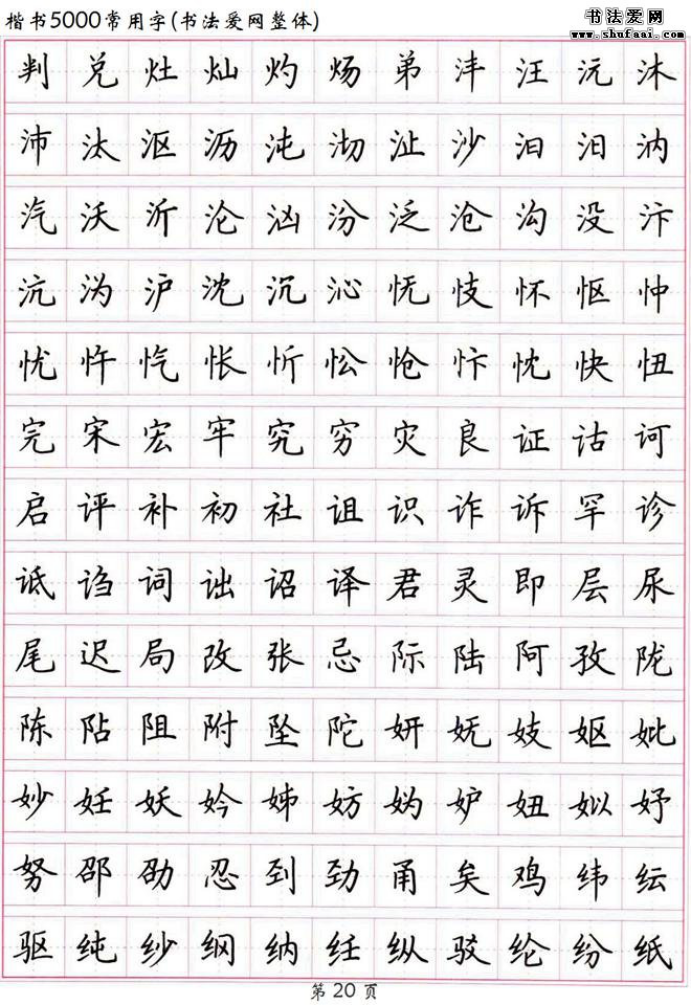 楷书5000常用字(书法爱网整体)
书法爱网
www.shufaai.com
判兑灶灿灼炀弟沣汪沅沐
沛汰沤沥沌沏沚沙汩汨汭
汽沃沂沦汹汾泛沧沟没汴
沆沩沪沈沉沁怃忮怀怄忡
忧忤忾怅忻忪怆忭忱快忸
完宋宏牢究穷灾良证诂诃
启评补初社诅识诈诉罕诊
诋诌词诎诏译君灵即层尿
尾迟局改张忌际陆阿孜陇
陈阽阻附坠陀妍妩妓妪妣
妙妊妖妗姊妨妫妒妞姒妤
努邵劭忍到劲甬矣鸡纬纭
驱纯纱纲纳纴纵驳纶纷纸
第20页